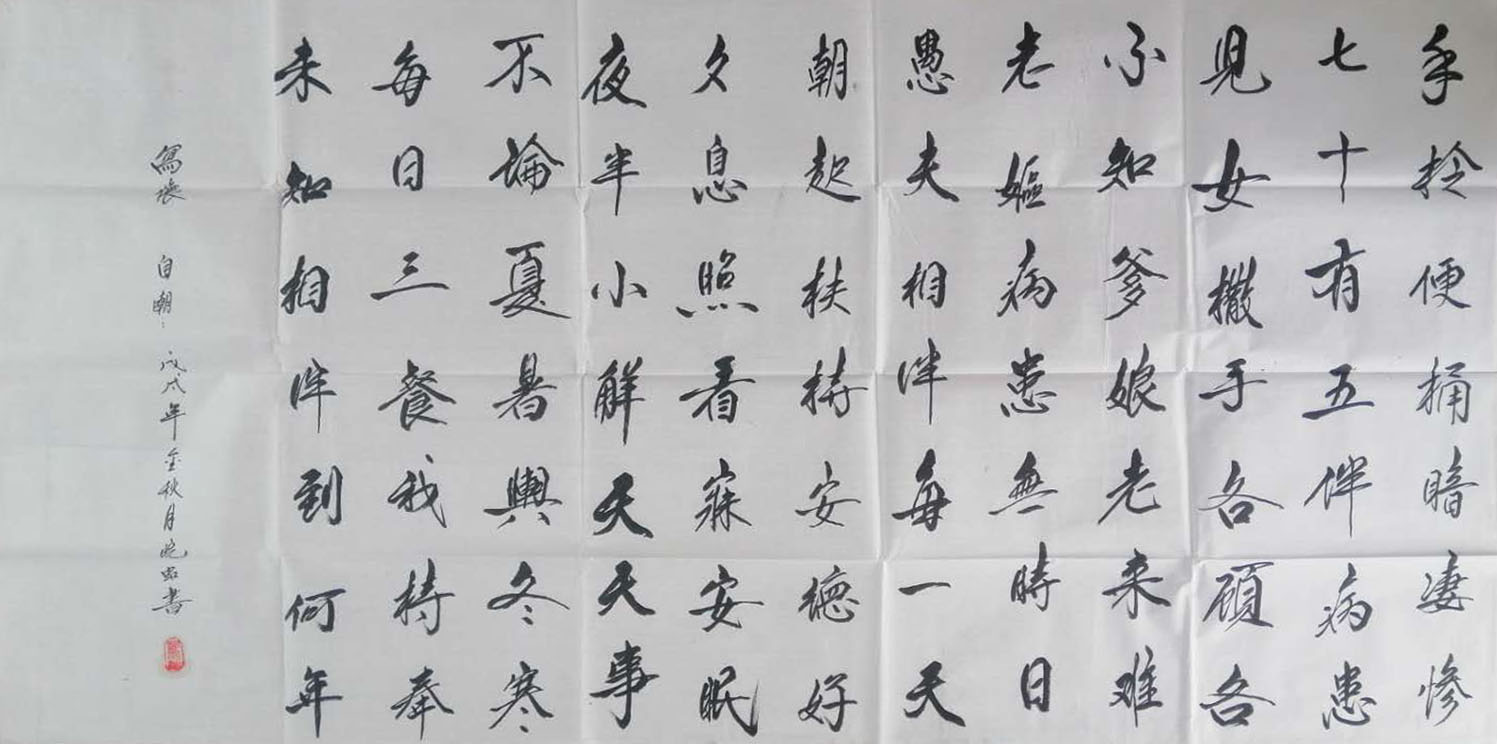 手拎便桶暗凄惨
七十有五伴病患
見女撒手各顾各
不知爹娘老来难
老嫗病患無時日
愚夫相伴每一天
朝起扶持安德好
夕息照看寐安眠
夜半小解天天事
不論夏暑與冬寒
每日三餐我持奉
未知相伴到何年
寫懷 自嘲 戊戌年金秋月 书